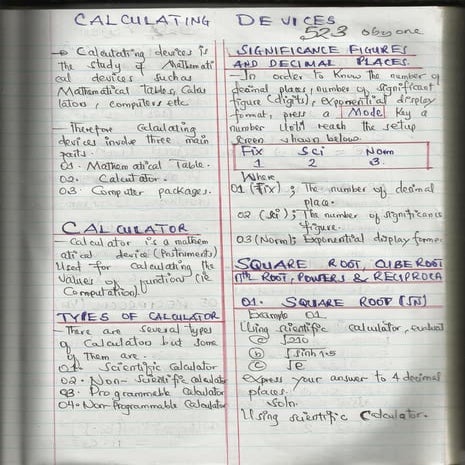 CALCULATING DEVICES
523 obyone
-o Calculating devices is
the study of Mathemati
cal devices such as
Mathematical Tables, Calcu
lators, computers etc
- Therefore Calculating
devices involve three main
parts
01. Mathematical Table.
02. Calculator.
03. Computer packages.
CALCULATOR
- Calculator is a mathem
atical device (Instruments)
Used for calculating the
values of function (ie
Computation)
TYPES OF CALCULATOR
- There are several types
of Calculator but some
of Them are.
01- Scientific Calculator
02- Non-Scientific calculator
03- Programmable Calculator
04- Non-Programmable Calculator
SIGNIFICANCE FIGURES
AND DECIMAL PLACES.
- In order to know the number of
decimal places, number of significant
figure (digits), Exponential display
format, press a Mode Key a
number Until reach the setup
screen shown below.
Fix Sci Norm
1 2 3.
Where
01 (Fix); The number of decimal
place.
02 (Sci); The number of significans
figure.
03 (Norm); Exponential display forme.
SQUARE ROOT, CUBE ROOT
nth ROOT, POWERS & RECIPROCA
01. SQUARE ROOT (√N)
Example 01
Using scientific calculator, evaluat
(a) √210
(b) √sinh 1.5
(c) √e
express your answer to 4 decimal
places.
soln.
Using scientific Calculator.